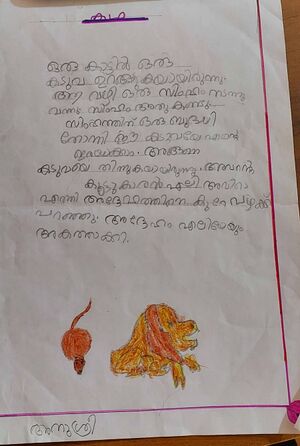 കഥ
ഒരു കാട്ടിൽ ഒരു
കടുവ ഉറങ്ങുകയായിരുന്നു.
ആ വഴി ഒരു സിംഹം നടന്നു
വന്നു. സിംഹം അതു കണ്ടു.
സിംഹത്തിന് ഒരു ബുദ്ധി
തോന്നി ഈ കടുവയെ ഞാൻ
അങ്ങനെ
കടുവയെ തിന്നുകയായിരുന്നു. അവന്റെ
കൂട്ടുകാരൻ എലി അവിടെ
എത്തി അദ്ദേഹത്തിനെ കുറേ വഴക്ക്
പറഞ്ഞു. അദ്ദേഹം എലിയേയും
അകത്താക്കി.
അനുശ്രി